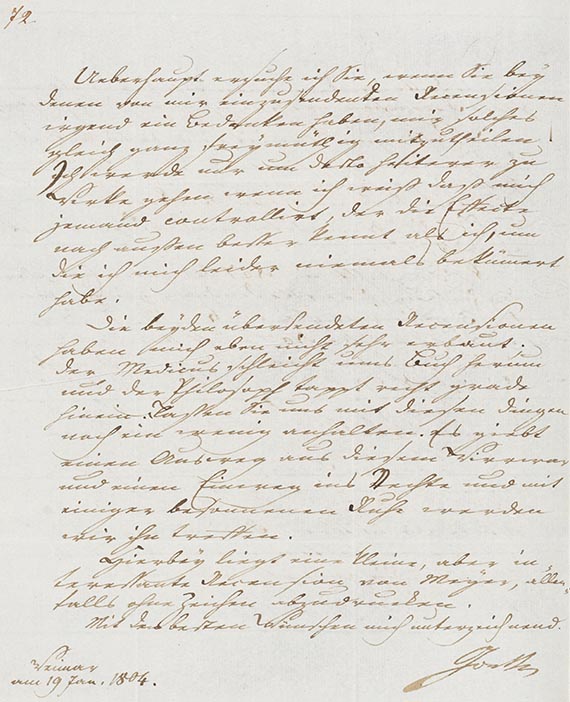 72
Ueberhaupt ersuche ich Sie, wenn Sie bey
denen von mir einzusendenden Recensionen
irgend ein Bedenken haben, mir solches
gleich ganz freymüthig mitzutheilen.
Ich werde nur um desto heiterer zu
Werke gehen wenn ich weiß daß mich
jemand controllirt, der die Effecte
nach außen besser kennt als ich, um
die ich mich leider niemals bekümmert
habe.
Die beyden übersendeten Recensionen
haben mich eben nicht sehr erbaut.
Der Medicus schleicht ums Buch herum
und der Philosoph tappt nicht grade
hinein. Lassen Sie uns mit diesen Dingen
noch ein wenig anhalten. Es giebt
einen Ausweg aus diesem Wirrwar
und einen Einweg ins Rechte und mit
einiger besonnenen Ruhe werden
wir ihn treffen.
Hierbey liegt eine kleine, aber in-
teressante Recension von Meyer, allen-
falls ohne Zeichen abzudrucken.
Mit den besten Wünschen mich unterzeichnend.
Weimar
am 19 Jan. 1804.
Goethe